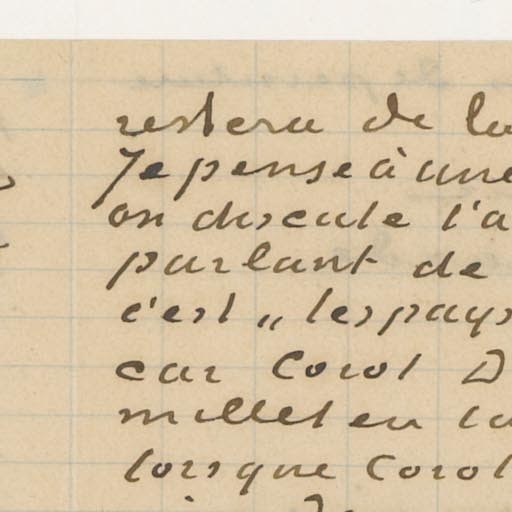 restera de la
Je pense à une
on discute l'a
parlant de
c'est „ les pays
car Corot D
millet en la
lorsque Corot